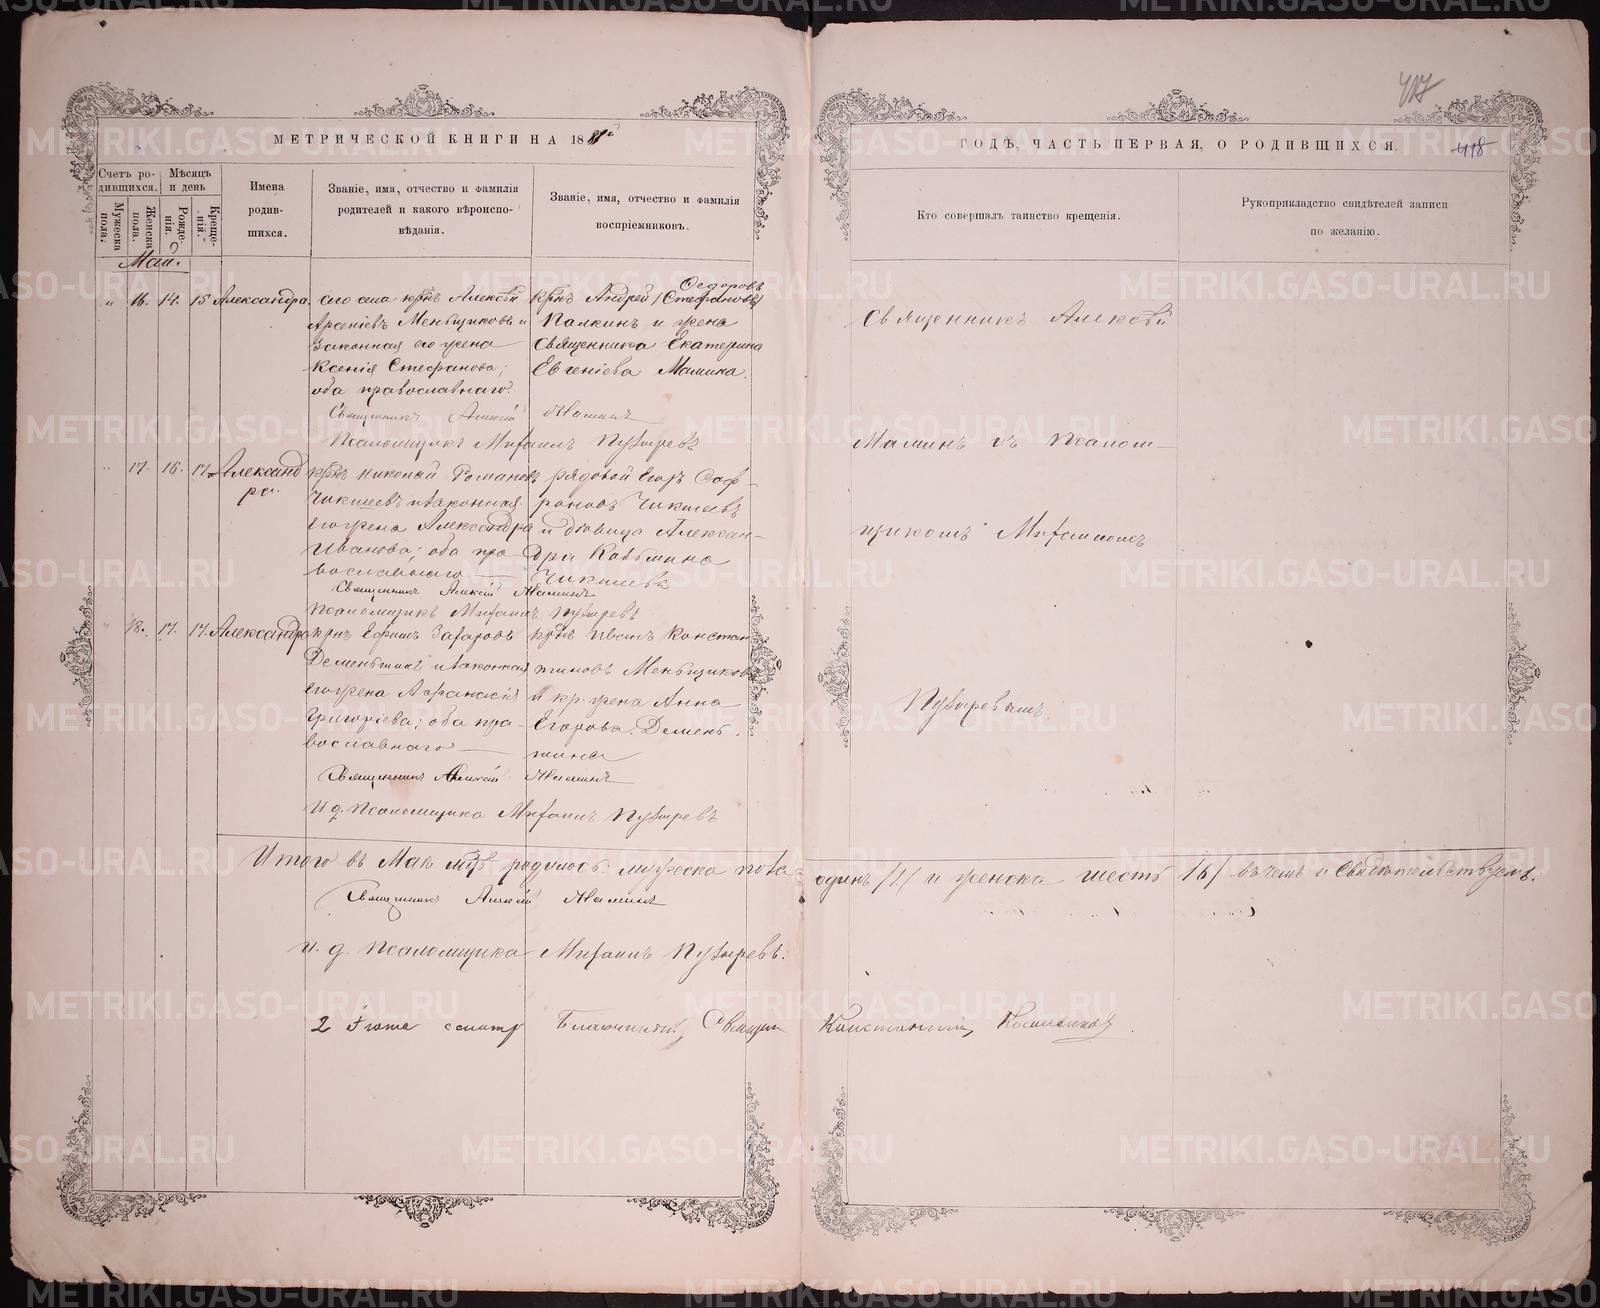 417
418
МЕТРИЧЕСКОЙ КНИГИ НА 18
ГОДѢ, ЧАСТЬ ПЕРВАЯ, О РОДИВШИХСЯ.
Счетъ ро-
дившихся.
Мѣсяцъ
и день
Мужеска
пола.
Женска
пола.
Рожде-
нія.
Креще-
нія.
Имена
родив-
шихся.
Званіе, имя, отчество и фамилія
родителей и какого вѣроиспо-
вѣданія.
Званіе, имя, отчество и фамилія
воспріемниковъ.
Кто совершалъ таинство крещенія.
Рукоприкладство свидѣтелей записи
по желанію.
Май.
" 16. 14. 15 Александра.
сего села крнъ Алексѣй
Арсеніевъ Меньщиковъ и
законная его жена
Ксенія Стефанова;
оба православнаго.
Ѳедоровъ
крнъ Андрей (Стефановъ)
Палкинъ и жена
Священника Екатерина
Евгеніева Мамина.
Священникъ Алексій Маминъ
Псаломщикъ Михаилъ Пузыревъ
" 17. 16. 17. Александ
ра.
крнъ Николай Романовъ
Чикишевъ и законная
его жена Александра
Иванова; оба пра-
вославнаго
рядовой Егоръ Саф-
роновъ Чикишевъ
и дѣвица Алексан-
дра Козьмина
Чикишева
Священникъ Алексій Маминъ
Псаломщикъ Михаилъ Пузыревъ
" 18. 17. 17. Александра
крнъ Ефимъ Захаровъ
Деменьшинъ и законная
его жена Афанасія
Григоріева; оба пра-
вославнаго
крнъ Иванъ Констан
тиновъ Меньщиковъ
и кр. жена Анна
Егорова Демень
шина
Священникъ Алексій Маминъ
И д. Псаломщика Михаилъ Пузыревъ
Священникъ Алексѣй
Маминъ съ Псалом-
щикомъ Михаиломъ
Пузыревымъ.
Итого въ Маѣ мцѣ родилось: мужеска пола одинъ /1/ и женска шесть /6/ въ чемъ и свидѣтельствуемъ:
Священникъ Алексій Маминъ
И. д. Псаломщика Михаилъ Пузыревъ.
2 Іюня Благочинный, Священ Константинъ
METRIKI.GASO-URAL.RU